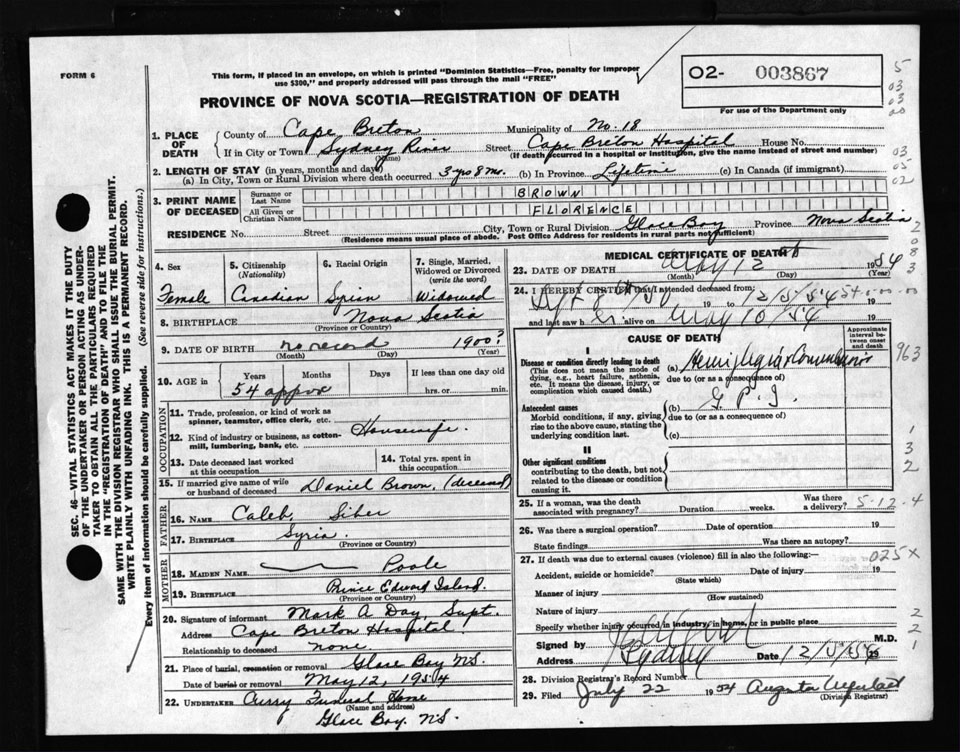 FORM 6
This form, if placed in an envelope, on which is printed "Dominion Statistics—Free, penalty for improper
use $300," and properly addressed will pass through the mail "FREE"
PROVINCE OF NOVA SCOTIA—REGISTRATION OF DEATH
02- 003867
For use of the Department only
1. PLACE OF DEATH
County of Cape Breton Municipality of No. 18
If in City or Town Sydney River Street Cape Breton Hospital House No.
(Name) (If death occurred in a hospital or institution, give the name instead of street and number)
2. LENGTH OF STAY (in years, months and days)
(a) In City, Town or Rural Division where death occurred 3 yrs 8 mo. (b) In Province Lifetime (c) In Canada (if immigrant)
3. PRINT NAME OF DECEASED
Surname or Last Name BROWN
All Given or Christian Names FLORENCE
RESIDENCE No. Street City, Town or Rural Division Glace Bay Province Nova Scotia
(Residence means usual place of abode. Post Office Address for residents in rural parts not sufficient)
4. Sex
Female
5. Citizenship
(Nationality)
Canadian
6. Racial Origin
Syrian
7. Single, Married,
Widowed or Divorced
(write the word)
Widowed
8. BIRTHPLACE Nova Scotia
(Province or Country)
9. DATE OF BIRTH no record 1900?
(Month) (Day) (Year)
10. AGE in
Years Months Days If less than one day old
54 approx hrs. or min.
OCCUPATION
11. Trade, profession, or kind of work as
spinner, teamster, office clerk, etc. Housewife.
12. Kind of industry or business, as cotton-
mill, lumbering, bank, etc.
13. Date deceased last worked
at this occupation
14. Total yrs. spent in
this occupation
15. If married give name of wife
or husband of deceased Daniel Brown, (deceased)
FATHER
16. NAME Caleb, Siber
17. BIRTHPLACE Syria
(Province or Country)
MOTHER
18. MAIDEN NAME Poole
19. BIRTHPLACE Prince Edward Island.
(Province or Country)
20. Signature of informant Mark A Day Supt.
Address Cape Breton Hospital.
Relationship to deceased none.
21. Place of burial, cremation or removal Glace Bay NS.
Date of burial or removal May 12, 1954
22. UNDERTAKER Curry Funeral Home
(Name and address)
Glace Bay. N.S.
MEDICAL CERTIFICATE OF DEATH
23. DATE OF DEATH May 12 1954
(Month) (Day) (Year)
24. I HEREBY CERTIFY that I attended deceased from:
Sept 8th/50 19 to 12/5/54 19
and last saw her alive on May 10/54 19
CAUSE OF DEATH
Approximate
interval be-
tween onset
and death
I
Disease or condition directly leading to death
(This does not mean the mode of
dying, e.g., heart failure, asthenia,
etc. It means the disease, injury, or
complication which caused death.)
(a)
due to (or as a consequence of)
Antecedent causes
Morbid conditions, if any, giving
rise to the above cause, stating the
underlying condition last.
(b) G. P. I.
due to (or as a consequence of)
(c)
II
Other significant conditions
contributing to the death, but not
related to the disease or condition
causing it.
25. If a woman, was the death
associated with pregnancy? Duration weeks. Was there
a delivery? 5-12-4
26. Was there a surgical operation? Date of operation 19
State findings Was there an autopsy?
27. If death was due to external causes (violence) fill in also the following:—
Accident, suicide or homicide? Date of injury 19
(State which)
025X
Manner of injury
(How sustained)
Nature of injury
Specify whether injury occurred in industry, in home, or in public place
Signed by M.D.
Address Sydney Date 12/5/54 19
28. Division Registrar's Record Number
29. Filed July 22 1954 Augusta
(Division Registrar)
SEC. 46—VITAL STATISTICS ACT MAKES IT THE DUTY
OF THE UNDERTAKER OR PERSON ACTING AS UNDER-
TAKER TO OBTAIN ALL THE PARTICULARS REQUIRED
IN THE "REGISTRATION OF DEATH" AND TO FILE THE
SAME WITH THE DIVISION REGISTRAR WHO SHALL ISSUE THE BURIAL PERMIT.
WRITE PLAINLY WITH UNFADING INK. THIS IS A PERMANENT RECORD.
Every item of information should be carefully supplied. (See reverse side for instructions.)
5
03
03
00
03
05
02
2
0
8
3
963
1
3
2
2
2
1